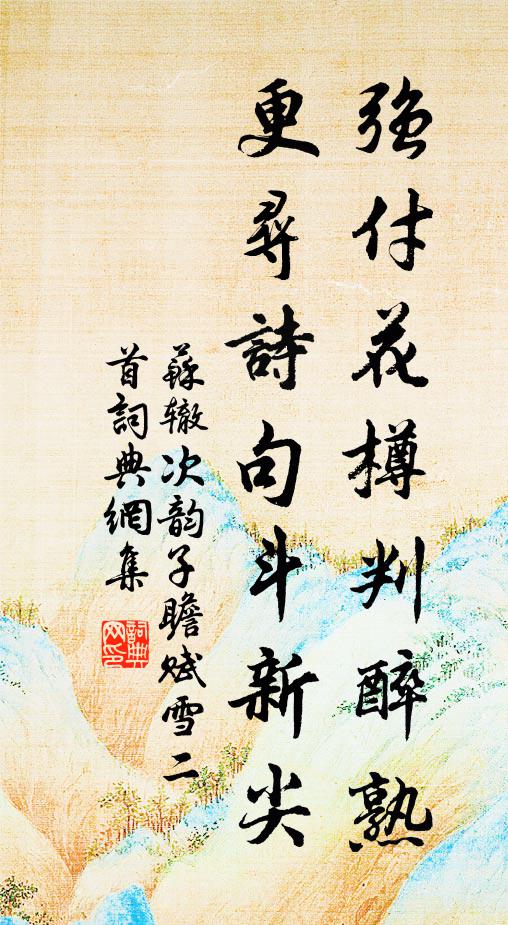 强付花樽判醉熟
更尋詩句斗新尖
蘇辙次韵子瞻赋雪二
首詞典網集
詞典网印